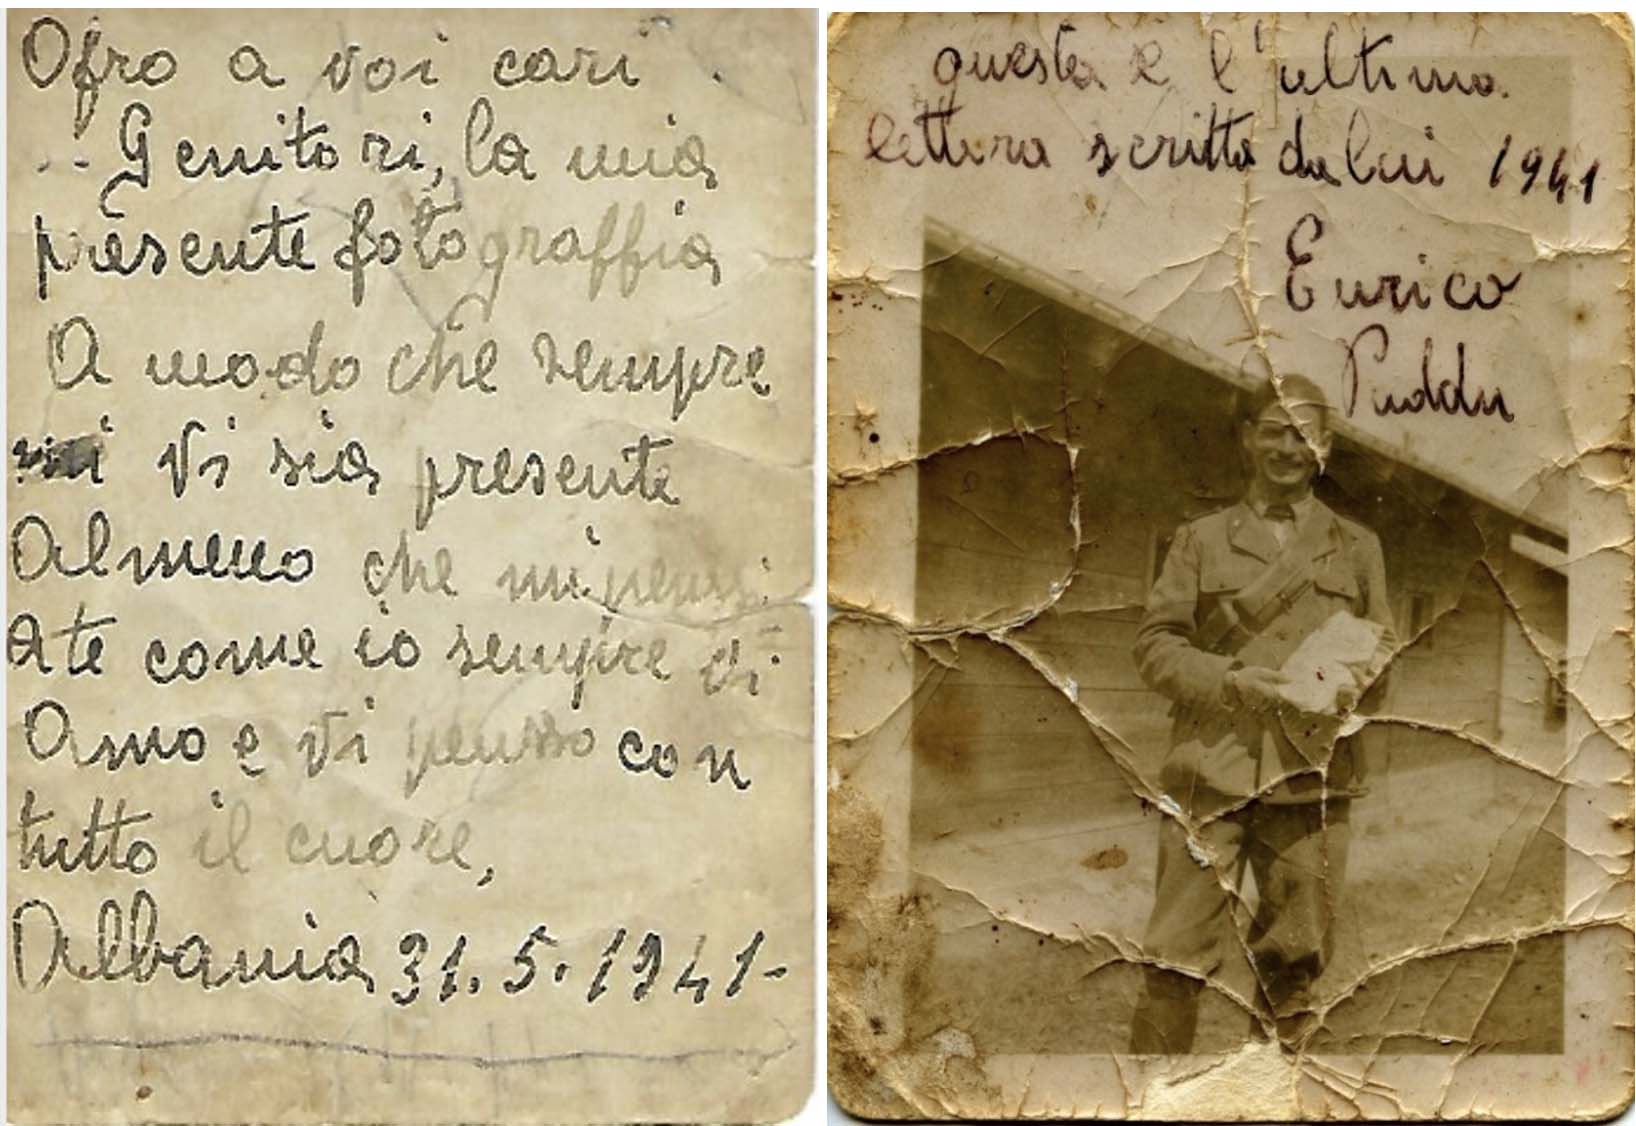 Ofro a voi cari
Genitori, la mia
presente fotograffia
A modo che sempre
vi sia presente
Almeno che mi pensi
ate come io sempre vi
Amo e vi penso con
tutto il cuore,
Albania 31.5.1941-
questa e l'ultima
lettera scritta da lui 1941
Enrico
Puddu